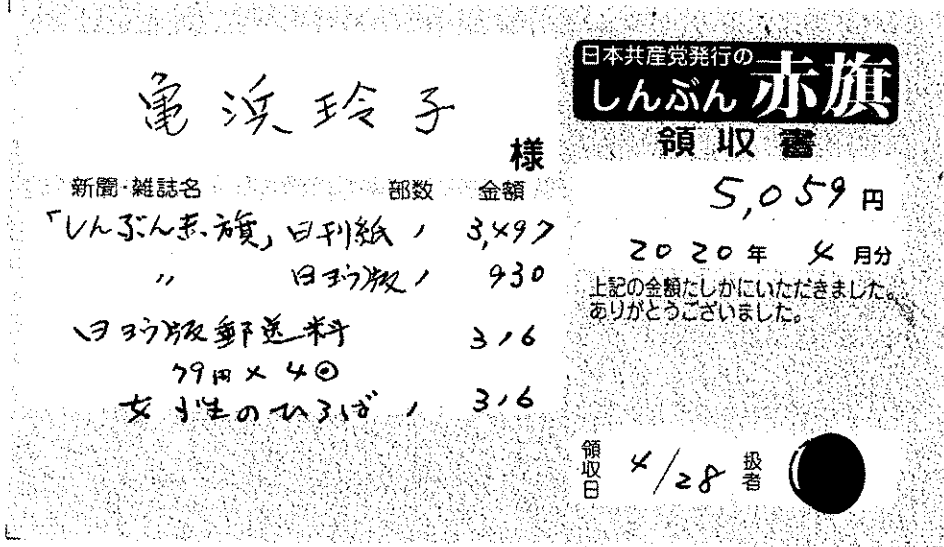 亀浜玲子
様
新聞・雑誌名 部数 金額
「しんぶん赤旗」日刊紙 1 3,497
〃 日ヨウ版 1 930
日ヨウ版郵送料 316
79円×4回
女性のひろば 1 316
日本共産党発行の
しんぶん赤旗
領収書
5,059円
2020年 4月分
上記の金額たしかにいただきました。
ありがとうございました。
領収日 4/28 扱者